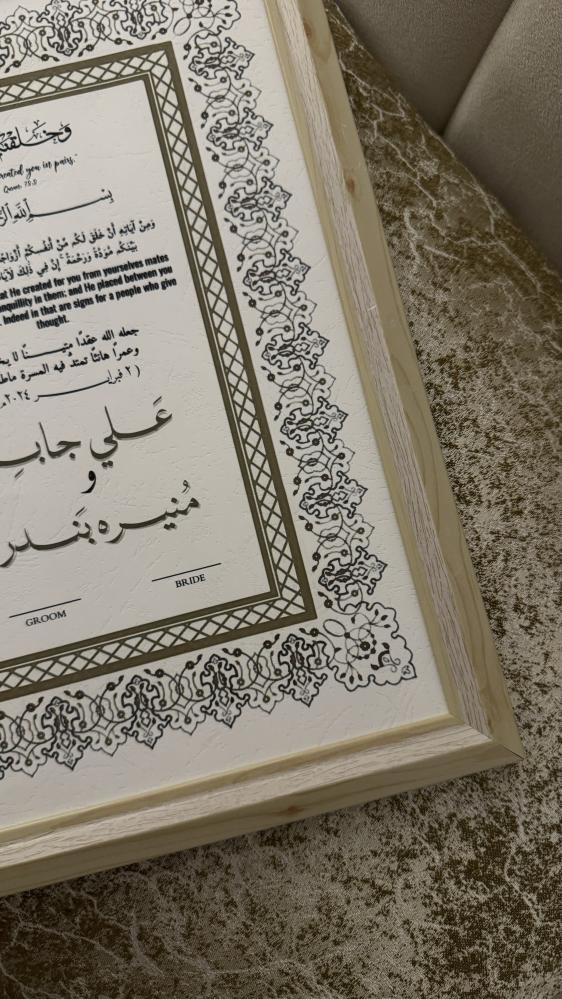 وَخَلَقْنَ
created you in pairs."
Quran, 78:8
بِسْمِ اللَّهِ
وَمِنْ آيَاتِهِ أَنْ خَلَقَ لَكُم مِّنْ أَنفُسِكُمْ أَزْوَاجً
بَيْنَكُم مَّوَدَّةً وَرَحْمَةً ۚ إِنَّ فِي ذَٰلِكَ لَآيَا
at He created for you from yourselves mates
nquillity in them; and He placed between you
. Indeed in that are signs for a people who give
thought.
جعله الله عقدًا متينًا لا
وعمرًا هانئًا تمتد فيه المسرة
( ٢ فبراير ٢٠٢٤م
عَلي جابِ
و
مُنيره بَندر
BRIDE
GROOM